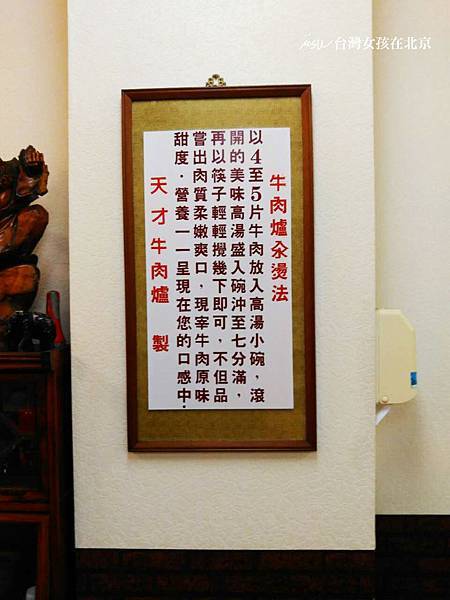 牛肉爐汆燙法
以4至5片牛肉放入高湯小碗,滾
開的美味高湯盛入碗沖至七分滿,
再以筷子輕輕攪幾下即可,不但品
嘗出肉質柔嫩爽口,現宰牛肉原味
甜度.營養一一呈現在您的口感中.
天才牛肉爐 製
台灣女孩在北京